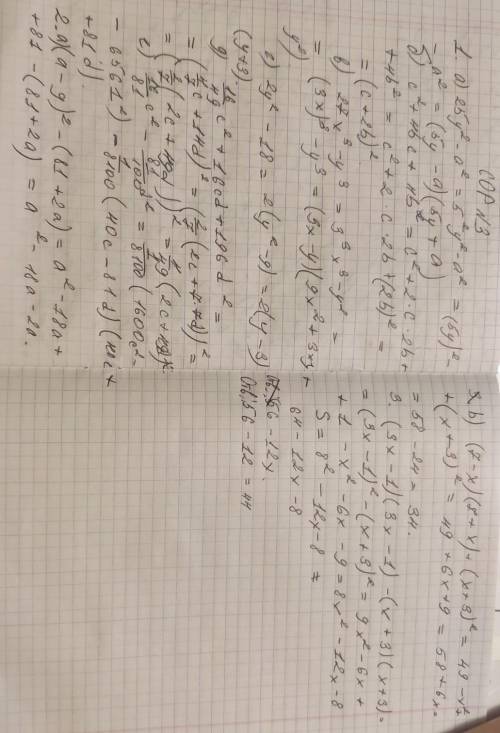 СОР №3
1. а) 25y²-a² = 5²y²-a² = (5y)²-
- a² = (5y-a)(5y+a)
б) c²+4bc+4b² = c²+2·c·2b+
+4b² = c²+2·c·2b+(2b)² =
= (c+2b)²
в) 27x³-y³ = 3³x³-y³ =
= (3x)³-y³ = (3x-y)(9x²+3xy+
y²)
2y²-18 = 2(y²-9) = 2(y-3)
(y+3).
= (2/7(2c+49d))² = 4/49(2c+49d)²
- 6561d²) = 1/8100(40c-81d)(40c+
+81d).
2.а)(a-9)²-(81+2a) = a²-18a+
+81-(81+2a) = a²-18a-2a.
б) (7-x)(7+x)+(x+3)² = 49-x²+
+(x+3)² = 49+6x+9 = 58+6x=
= 58-24 = 34.
3. (3x-1)(3x-1)-(x+3)(x+3)=
= (3x-1)²-(x+3)² = 9x²-6x+
+1-x²-6x-9 = 8x²-12x-8
S = 8²-12x-8 =
64-12x-8
56-12x.
56-12 = 44